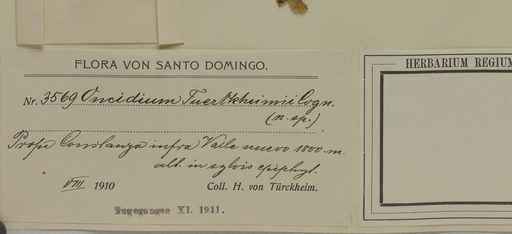 FLORA VON SANTO DOMINGO.
HERBARIUM REGIUM
Nr. 3569 Oncidium Tuerckheimii Cogn.
(n. sp.)
Prope Constanza infra Valle nuevo 1800 m.
alt. in sylvis epiphyt.
VIII 1910 Coll. H. von Türckheim.
XI. 1911.